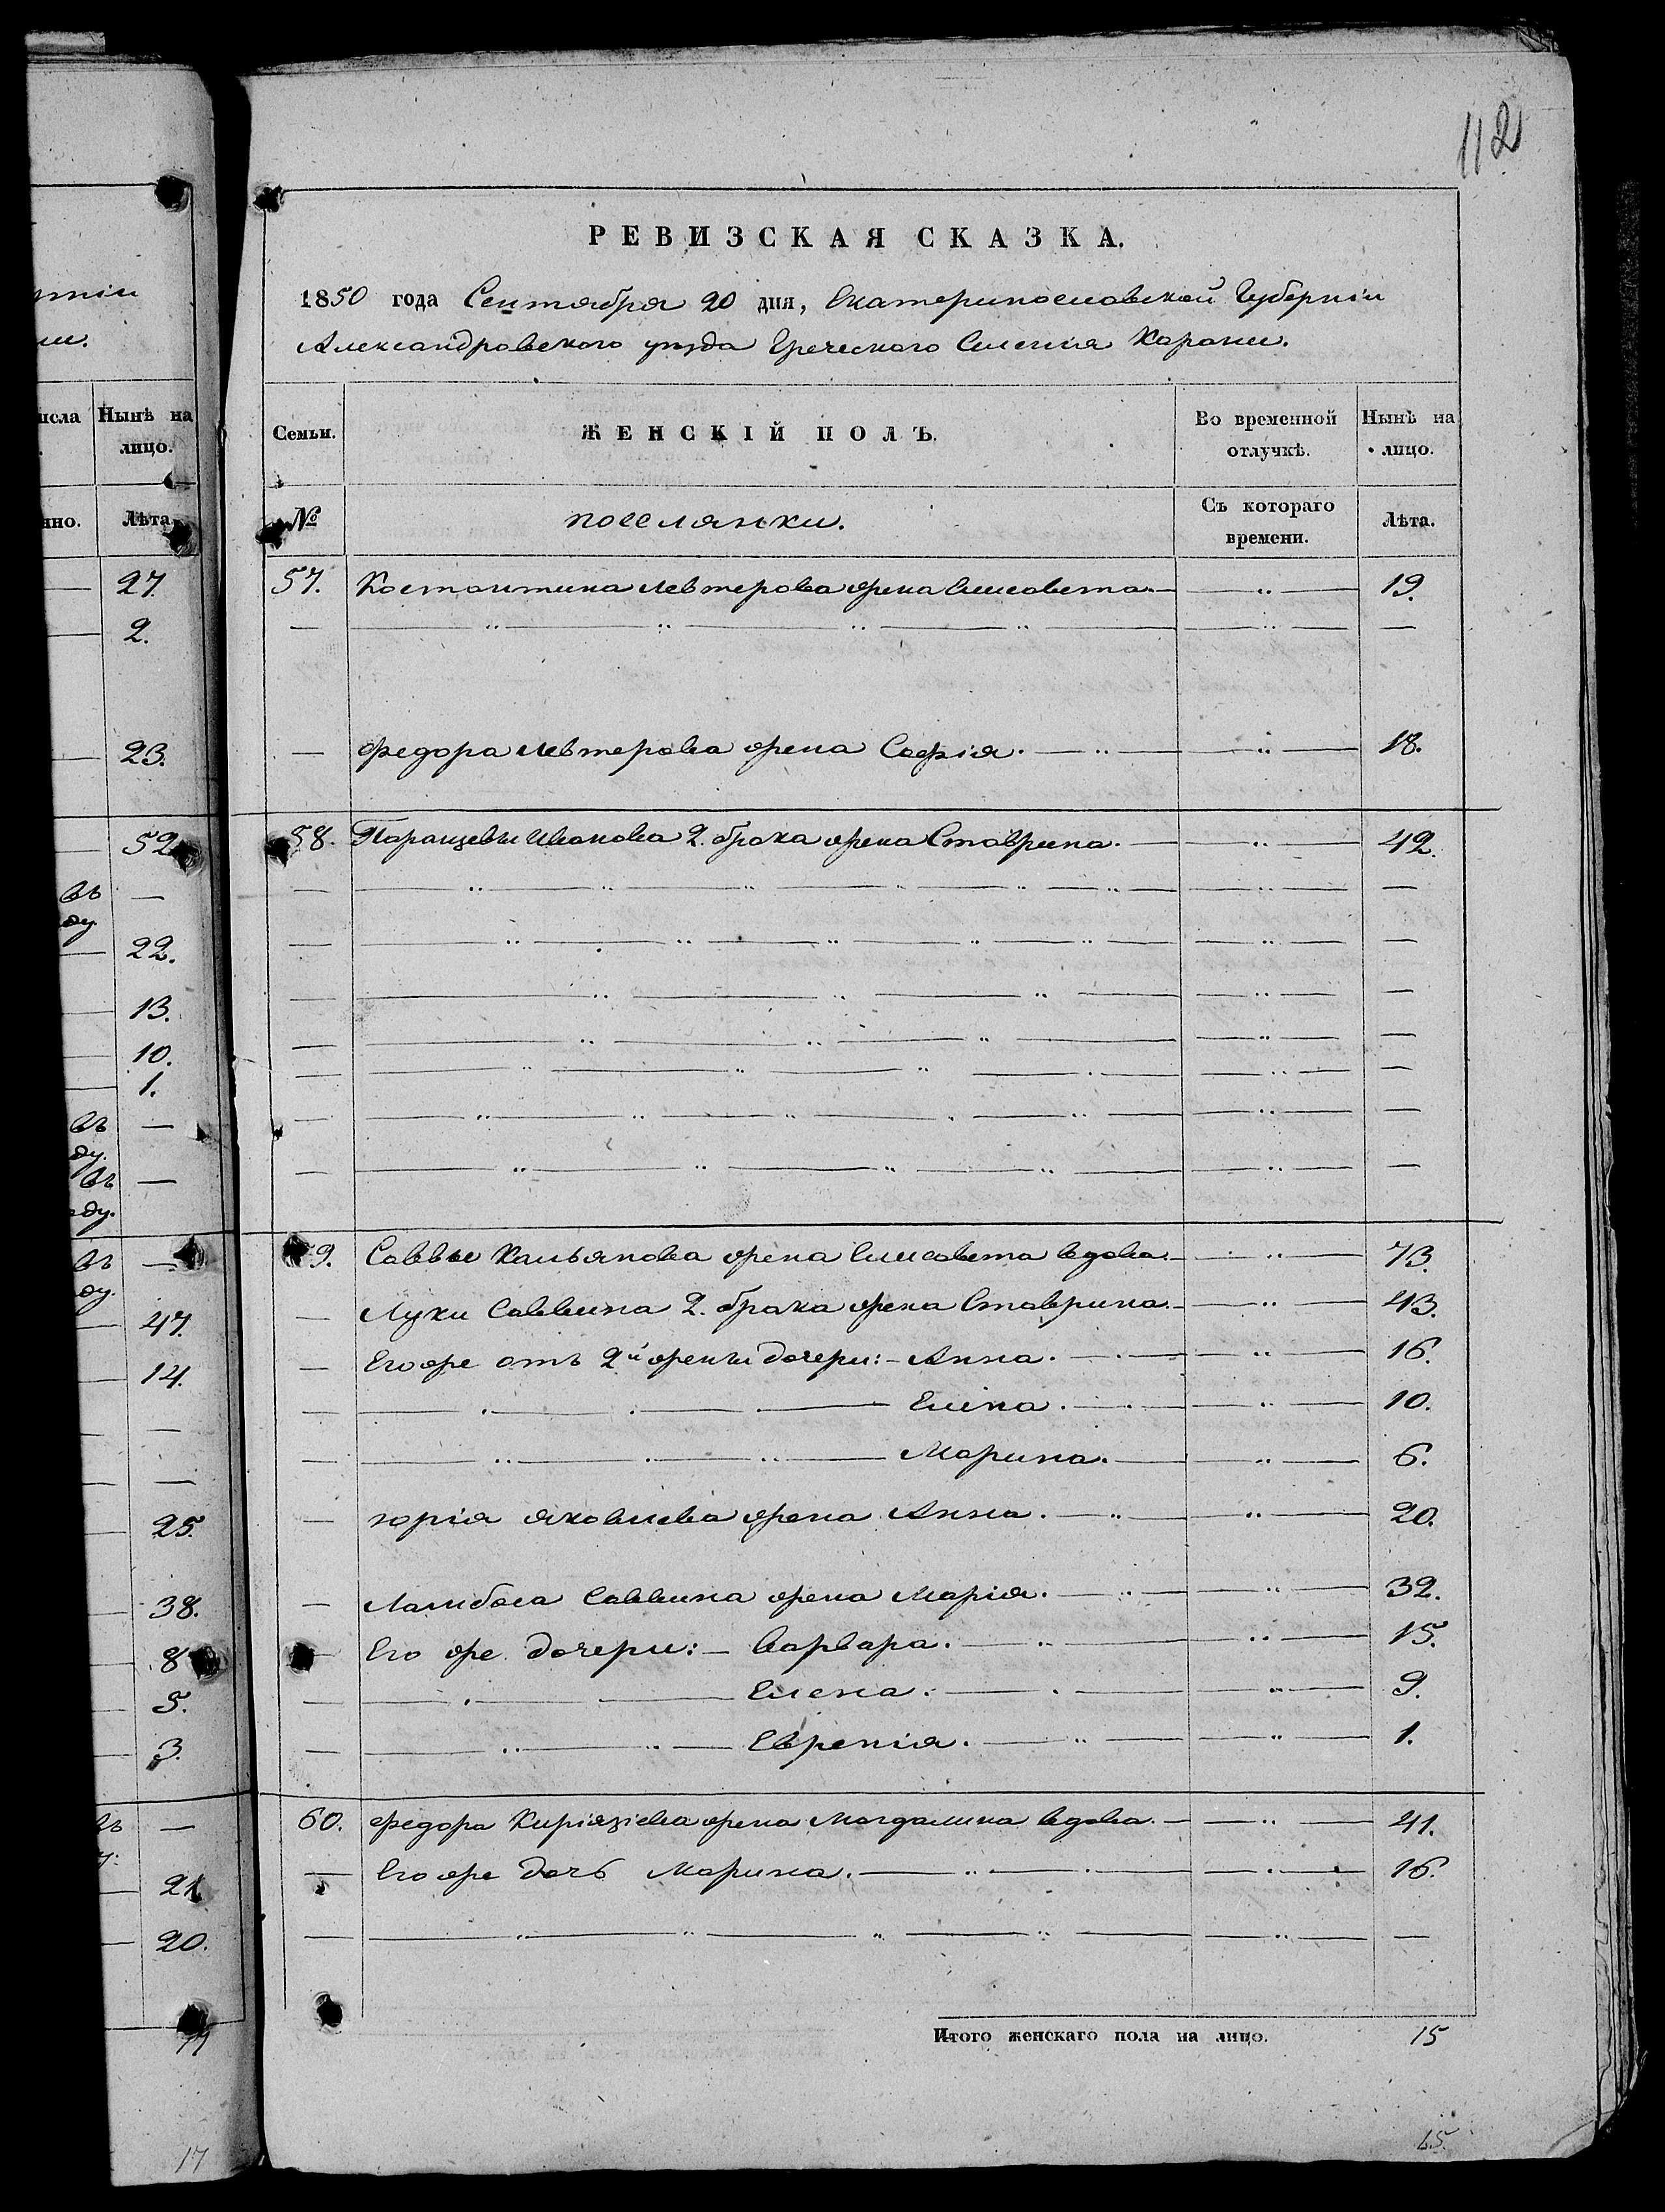 112
РЕВИЗСКАЯ СКАЗКА.
1850 года Сентября 20 дня, Екатеринославской Губерніи
Александровского уѣзда Греческого Селенія Карани.
Семьи. ЖЕНСКІЙ ПОЛЪ. Во временной отлучкѣ. Нынѣ на лицо.
№ поселянки. Съ котораго времени. Лѣта.
57. Костантина Левтерова жена Елисавета. — 19.
— Федора Левтерова жена Софія. — 18.
58. Паранцевы Иванова 2. брака жена Ставрина. — 42.
59. Саввы Кальянова жена Елисавета вдова. — 73.
— Луки Саввина 2. брака жена Ставрина. — 43.
— Его же отъ 2й жены дочери: – Анна. — 16.
— Елена. — 10.
— Марина. — 6.
— Юрія Яковлева жена Анна. — 20.
— Ламбоса Саввина жена Марія. — 32.
— Его же дочери: – Варвара. — 15.
— Елена. — 9.
— Еврепія. — 1.
60. Федора Киріязіева жена Магдалина вдова. — 41.
— Его же дочь Марина. — 16.
Итого женскаго пола на лицо. 15
15.
исла Нынѣ на лицо.
нно. Лѣта.
27.
2.
23.
52.
въ —
ду.
22.
13.
10.
1.
въ —
ду.
въ —
ду.
въ —
ду.
47.
14.
25.
38.
8.
5.
3.
въ —
21.
20.
17